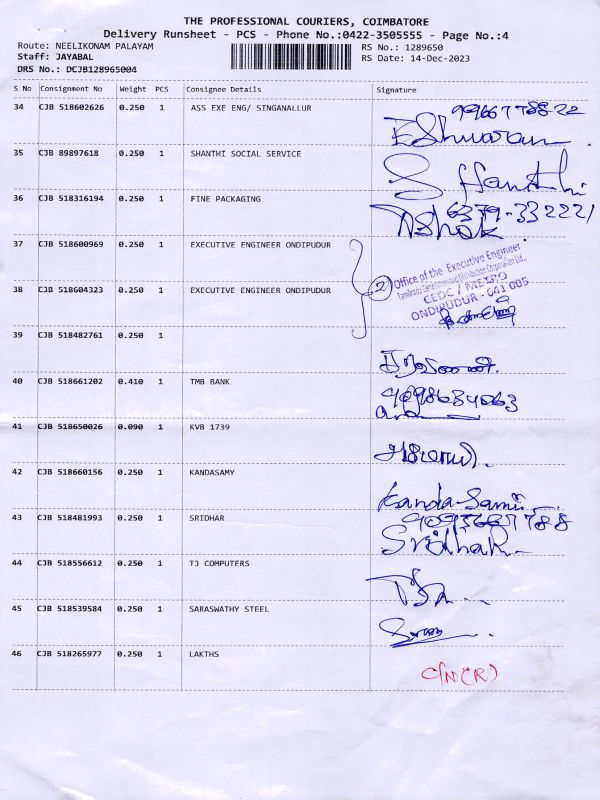 THE PROFESSIONAL COURIERS, COIMBATORE
Delivery Runsheet - PCS - Phone No.:0422-3505555 - Page No.:4
Route: NEELIKONAM PALAYAM RS No.: 1289650
Staff: JAYABAL RS Date: 14-Dec-2023
DRS No.: DCJB128965004
S No Consignment No Weight PCS Consignee Details Signature
34 CJB 518602626 0.250 1 ASS EXE ENG/ SINGANALLUR
Eshwaran
35 CJB 89897618 0.250 1 SHANTHI SOCIAL SERVICE
S. Shanthi
36 CJB 518316194 0.250 1 FINE PACKAGING 6379-332221
Ashok
37 CJB 518600969 0.250 1 EXECUTIVE ENGINEER ONDIPUDUR
2 Office of the Executive Engineer
38 CJB 518604323 0.250 1 EXECUTIVE ENGINEER ONDIPUDUR
CEDC / METRO
ONDIPUDUR - 641 005
39 CJB 518482761 0.250 1
40 CJB 518661202 0.410 1 TMB BANK
41 CJB 518650026 0.090 1 KVB 1739
42 CJB 518660156 0.250 1 KANDASAMY
Kanda-Sami
43 CJB 518481993 0.250 1 SRIDHAR
Sridhar
44 CJB 518556612 0.250 1 TJ COMPUTERS
45 CJB 518539584 0.250 1 SARASWATHY STEEL
46 CJB 518265977 0.250 1 LAKTHS
C/N(R)